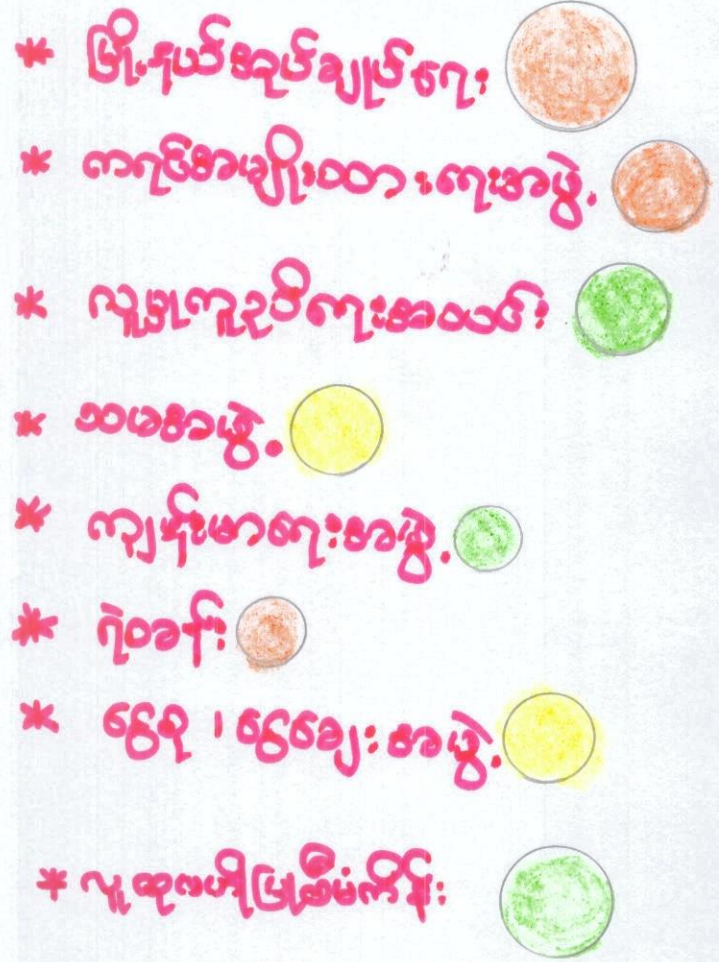 * မြို့နယ်အုပ်ချုပ်ရေး
* ကရင်အမျိုးသားရေးအဖွဲ့
* လူမှုကူညီရေးအသင်း
* သမအဖွဲ့
* ကျန်းမာရေးအဖွဲ့
* ရဲစခန်း
* ငွေစု၊ ငွေချေးအဖွဲ့
* လူထုဗဟိုပြုစီမံကိန်း